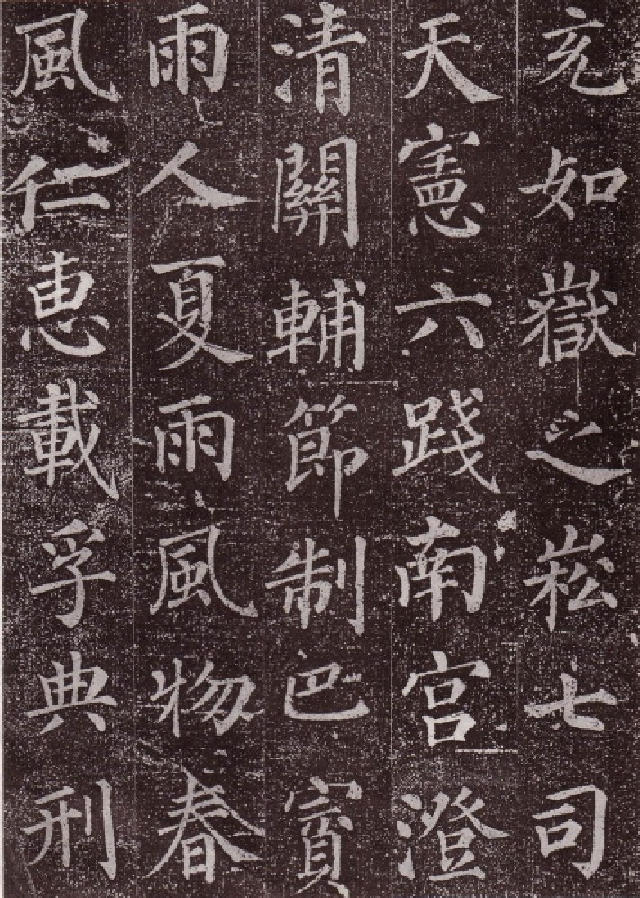 兖如嶽之崧七司
天憲六踐南宫澄
清關輔節制巴賓
雨人夏雨風物春
風仁惠載孚典刑